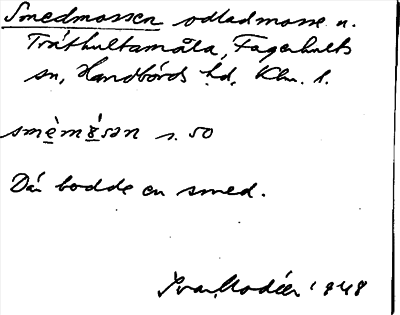 Smedmossen odlad mosse u.
Tråthultamåla, Fagerhults
sn, Handbörds hd, Klm. l.
smèmòsən s. 50
Där bodde en smed.
Ivar Modéer 1948